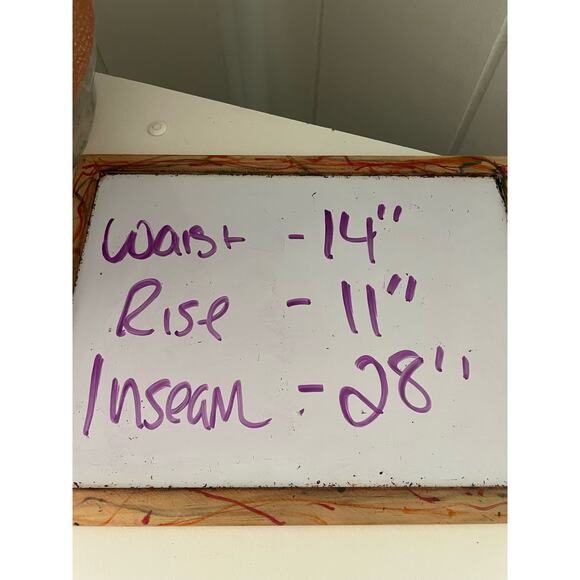 Waist - 14"
Rise - 11"
Inseam - 28"